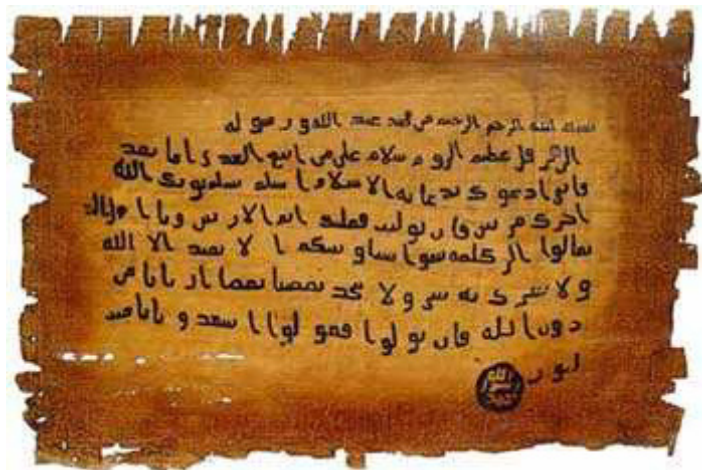 بسم الله الرحمن الرحيم من محمد عبد الله ورسوله
الى هرقل عظيم الروم سلام على من اتبع الهدى اما بعد
فانى ادعوك بدعاية الاسلام اسلم تسلم يوتك الله
اجرك مرتين فان توليت فعليك اثم الاريسين ويا اهل
تعالوا الى كلمة سوا بيننا وبينكم ا لا نعبد الا الله
ولا نشرك به شى ولا يتخذ بعضنا بعضا اربابا من
دون الله فان تولوا فقولوا اشهدوا بانا مسلـ
مون
الله
رسول
محمد